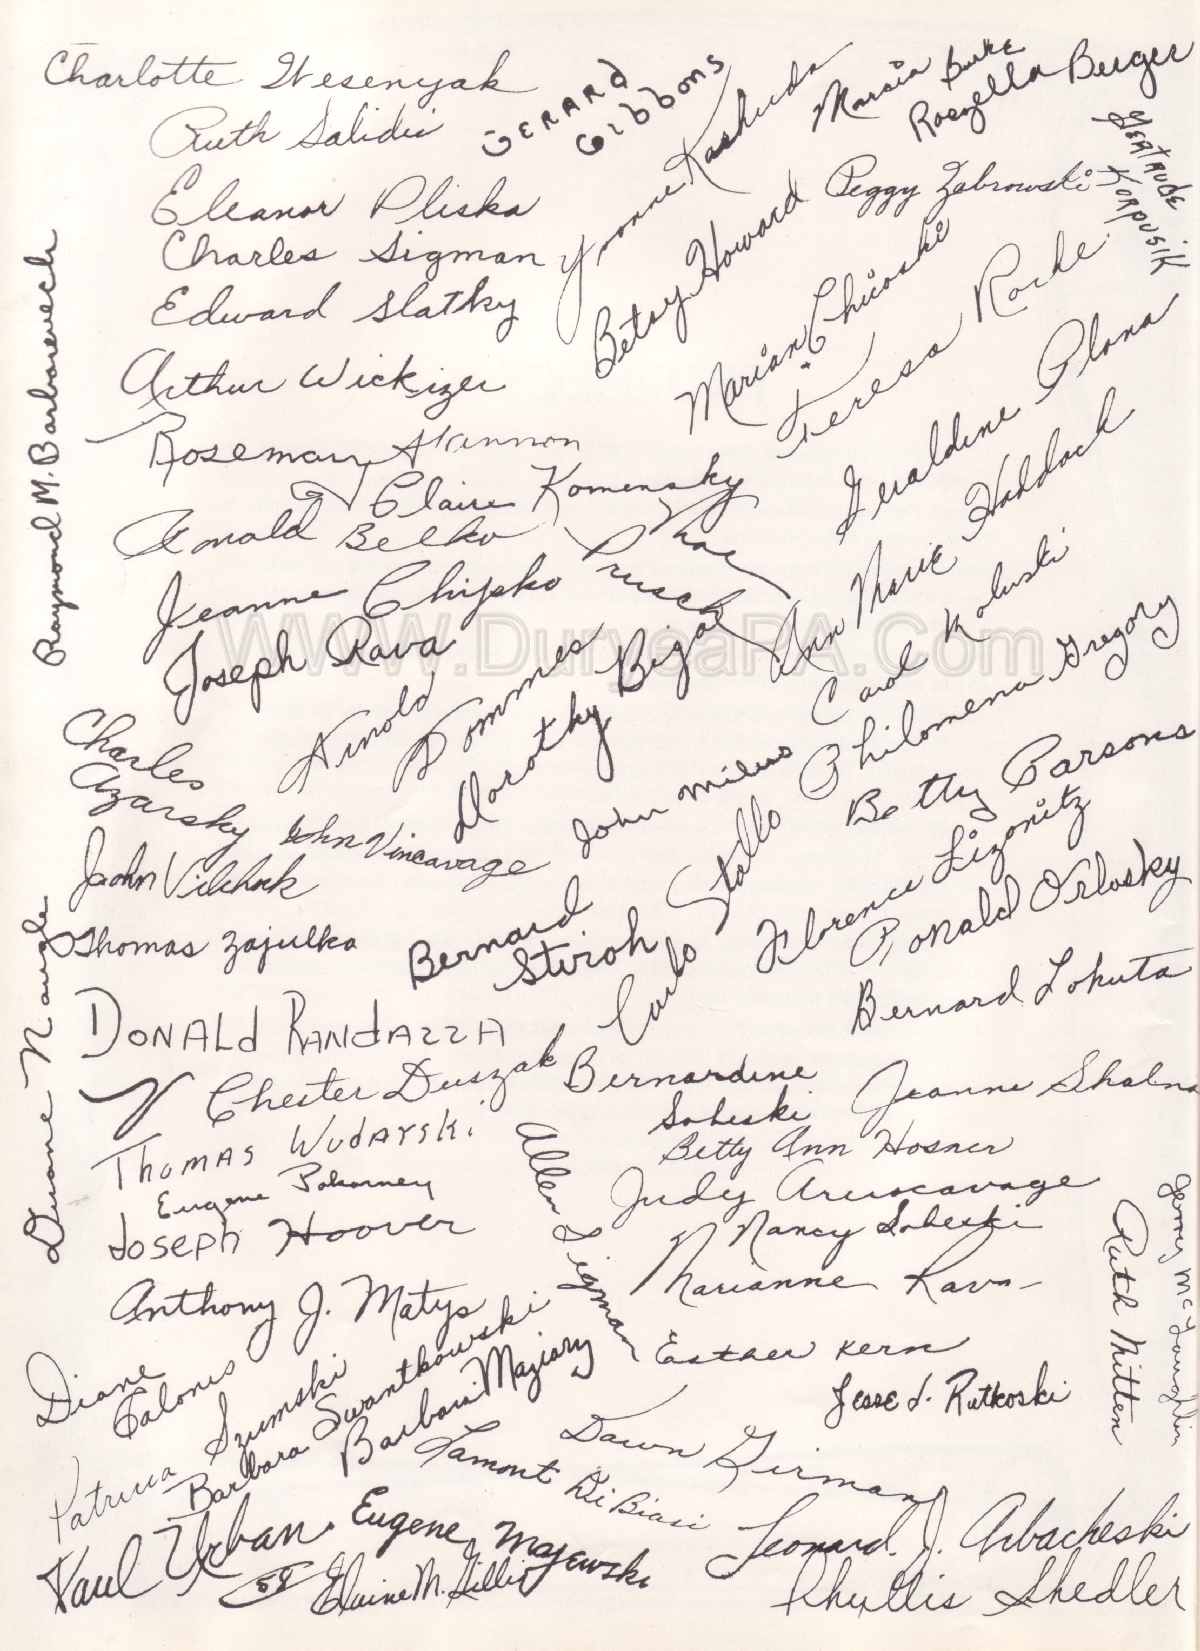 Charlotte Wesenyak
Ruth Salidis
GERARD
Gibbons
Yvonne Kashuda
Marcia Burke
Rosella Berger
GERTRUDE
KORPUSIK
Eleanor Pliska
Charles Sigman
Edward Slatky
Betsy Howard
Peggy Zabrowski
Marian Chicoski
Teresa Roche
Raymond M. Barbarevech
Arthur Wickizer
Rosemary Shannon
Claire Komensky
Geraldine Plana
Ann Marie Haddock
Arnold Belko
Mae
Prusch
Jeanne Chipko
Joseph Rava
WWW.DuryeaPA.Com
Carol Koluski
Philomena Gregory
Arnold
Dommes
Dorothy Bigal
Charles
Azarsky
John Vincavage
John Milius
Betty Parsons
John Vilchock
Carlo Stallo
Florence Lizonitz
Thomas Zajulka
Bernard
Stiroh
Ronald Orlosky
Duane Naugle
DONALD RANDAZZA
Bernard Lokuta
Chester Duszak
Bernardine
Sobeski
Jeanne Shalna
THOMAS WUDARSKi
Betty Ann Hosner
Eugene Pokorney
Allen Sigman
Judy Aruscavage
Joseph Hoover
Nancy Sobeski
Marianne Rava
Ruth Mitten
Gerry McLaughlin
Anthony J. Matys
Esther Kern
Diane
Calones
Jesse J. Rutkoski
Patricia Szumski
Barbara Swantkowski
Barbara Maziarz
Lamont DiBiasi
Dawn Girman
Paul Urban
58
Eugene Majewski
Elaine M. Gillis
Leonard J. Arbacheski
Phyllis Shedler